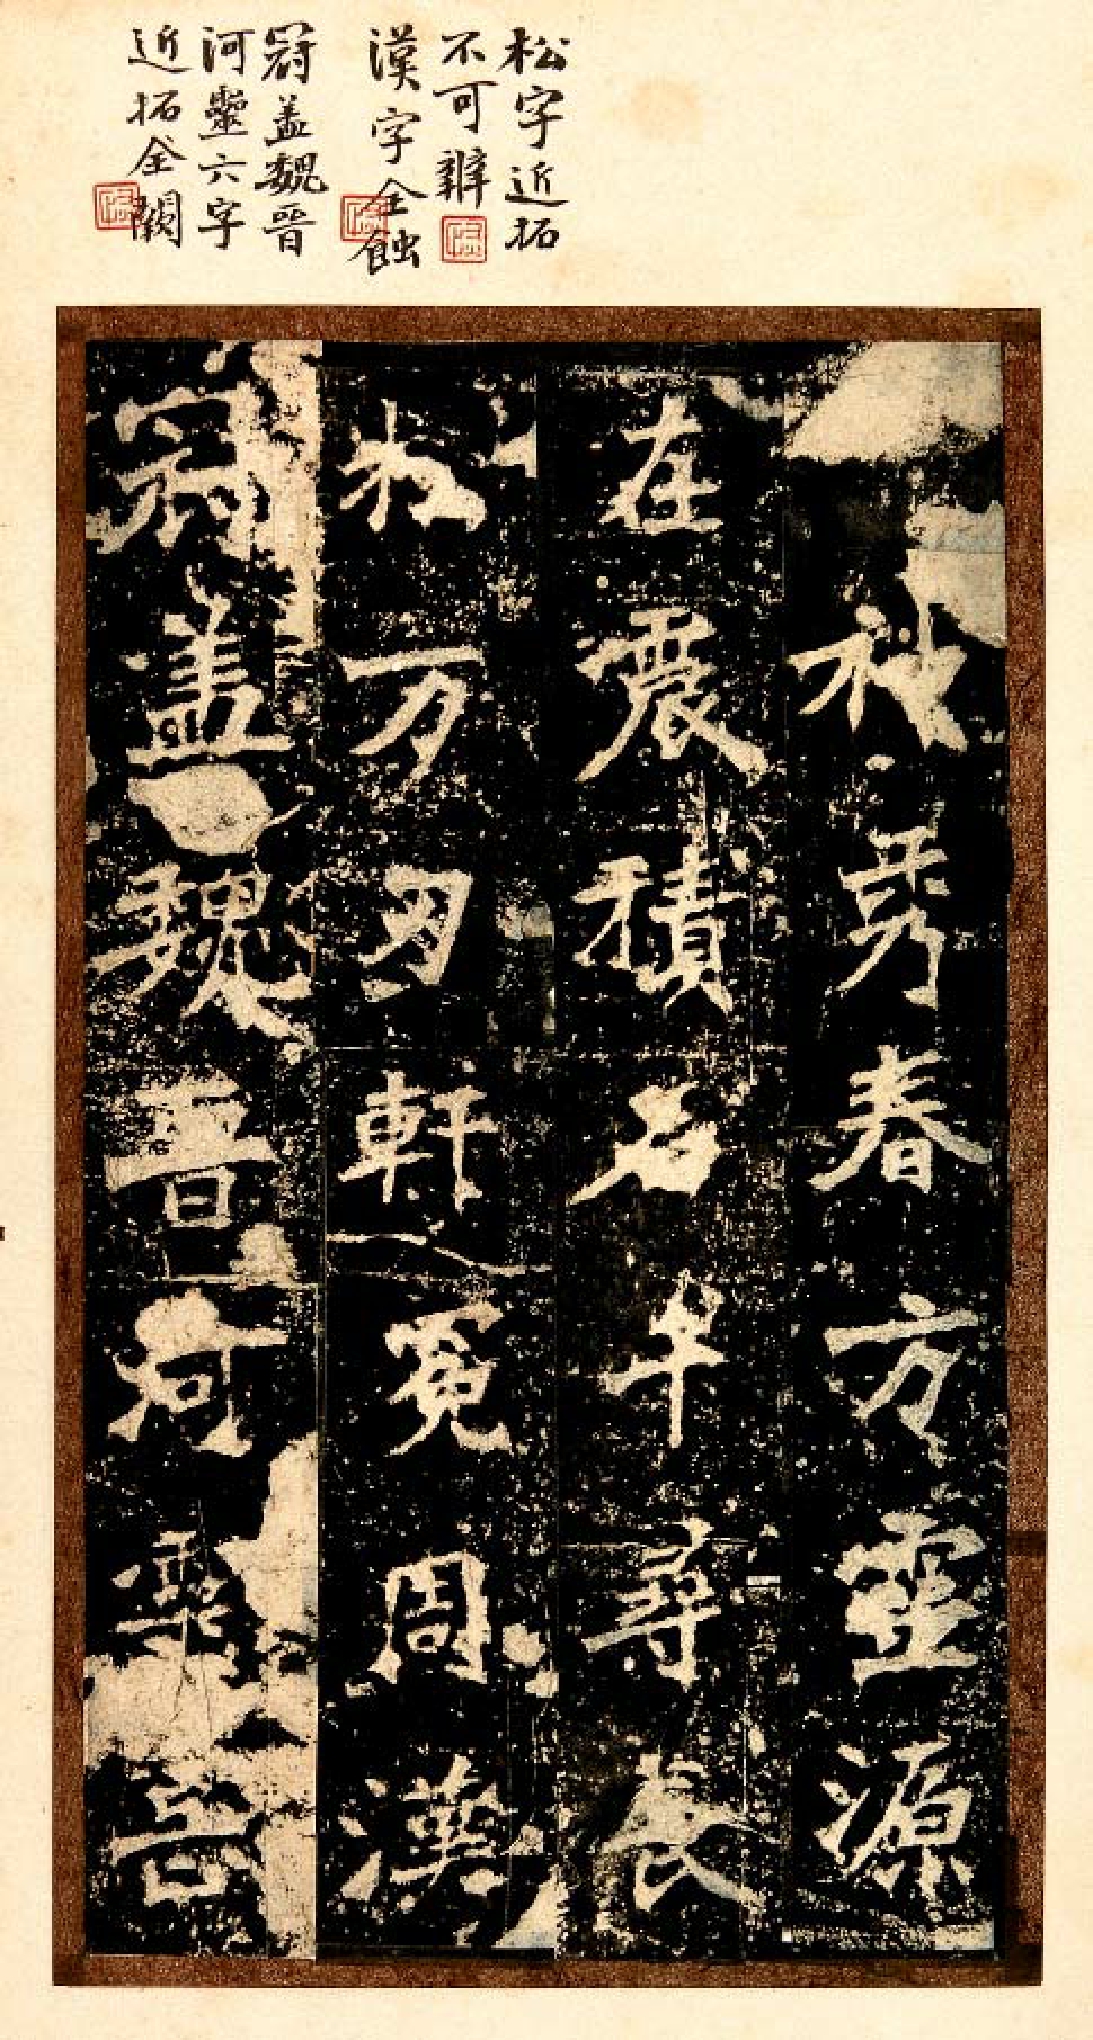 松字近拓
不可辨
漢字全蝕
冠盖魏晉
河靈六字
近拓全闕
神秀春方靈源
在震積石千尋長
松万刃軒冕周漢
冠盖魏晉河靈岳